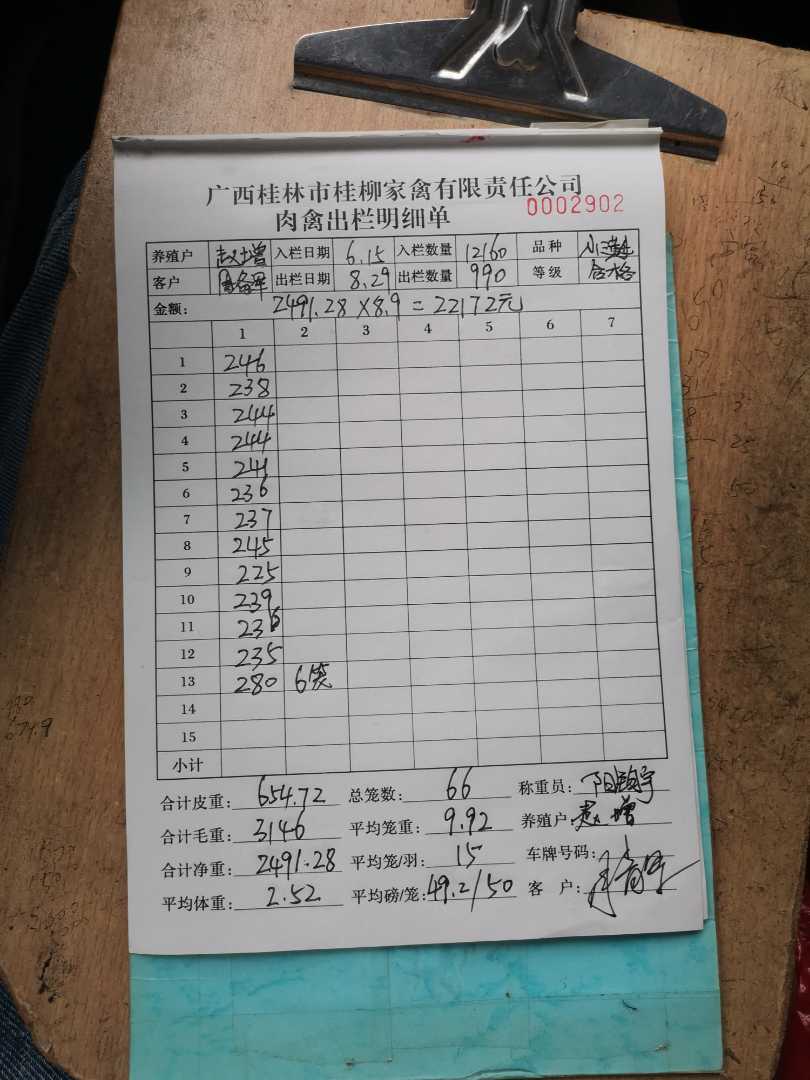 广西桂林市桂柳家禽有限责任公司
肉禽出栏明细单 0002902
养殖户 赵增 入栏日期 6.15 入栏数量 12160 品种
客户 出栏日期 8.29 出栏数量 990 等级 合格
金额: 2491.28×8.9=22172元
1 2 3 4 5 6 7
1 246
2 238
3 244
4 244
5 241
6 236
7 237
8 245
9 225
10 239
11 236
12 235
13 280 6笼
14
15
小计
合计皮重: 654.72 总笼数: 66 称重员:
合计毛重: 3146 平均笼重: 9.92 养殖户: 赵增
合计净重: 2491.28 平均笼/羽: 15 车牌号码:
平均体重: 2.52 平均磅/笼: 49.2/50 客 户: